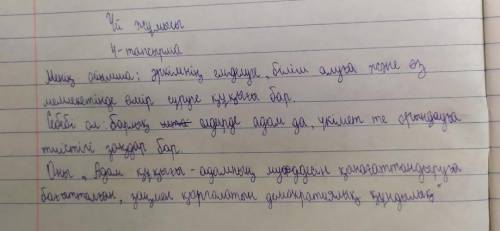 Үй жұмысы
4-тапсырма
Менің ойымша: әркімнің емделуге, білім алуға және өз
мемлекетінде өмір сүруге құқығы бар.
Себебі ол барлық елдерде адам да, үкімет те орындауға
тиісті заңдар бар.
Оны „Адам құқығы - адамның мүддесін қанағаттандыруға
бағытталған, заңмен қорғалатын демократиялық құндылық"